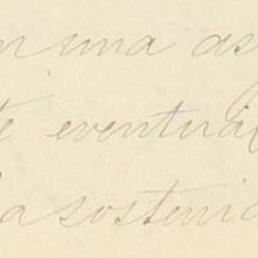 n una as
te eventua
la sostenid